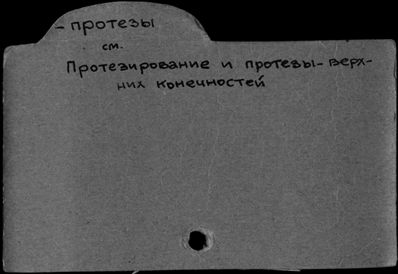 - протезы
см.
Протезирование и протезы - верх-
них конечностей